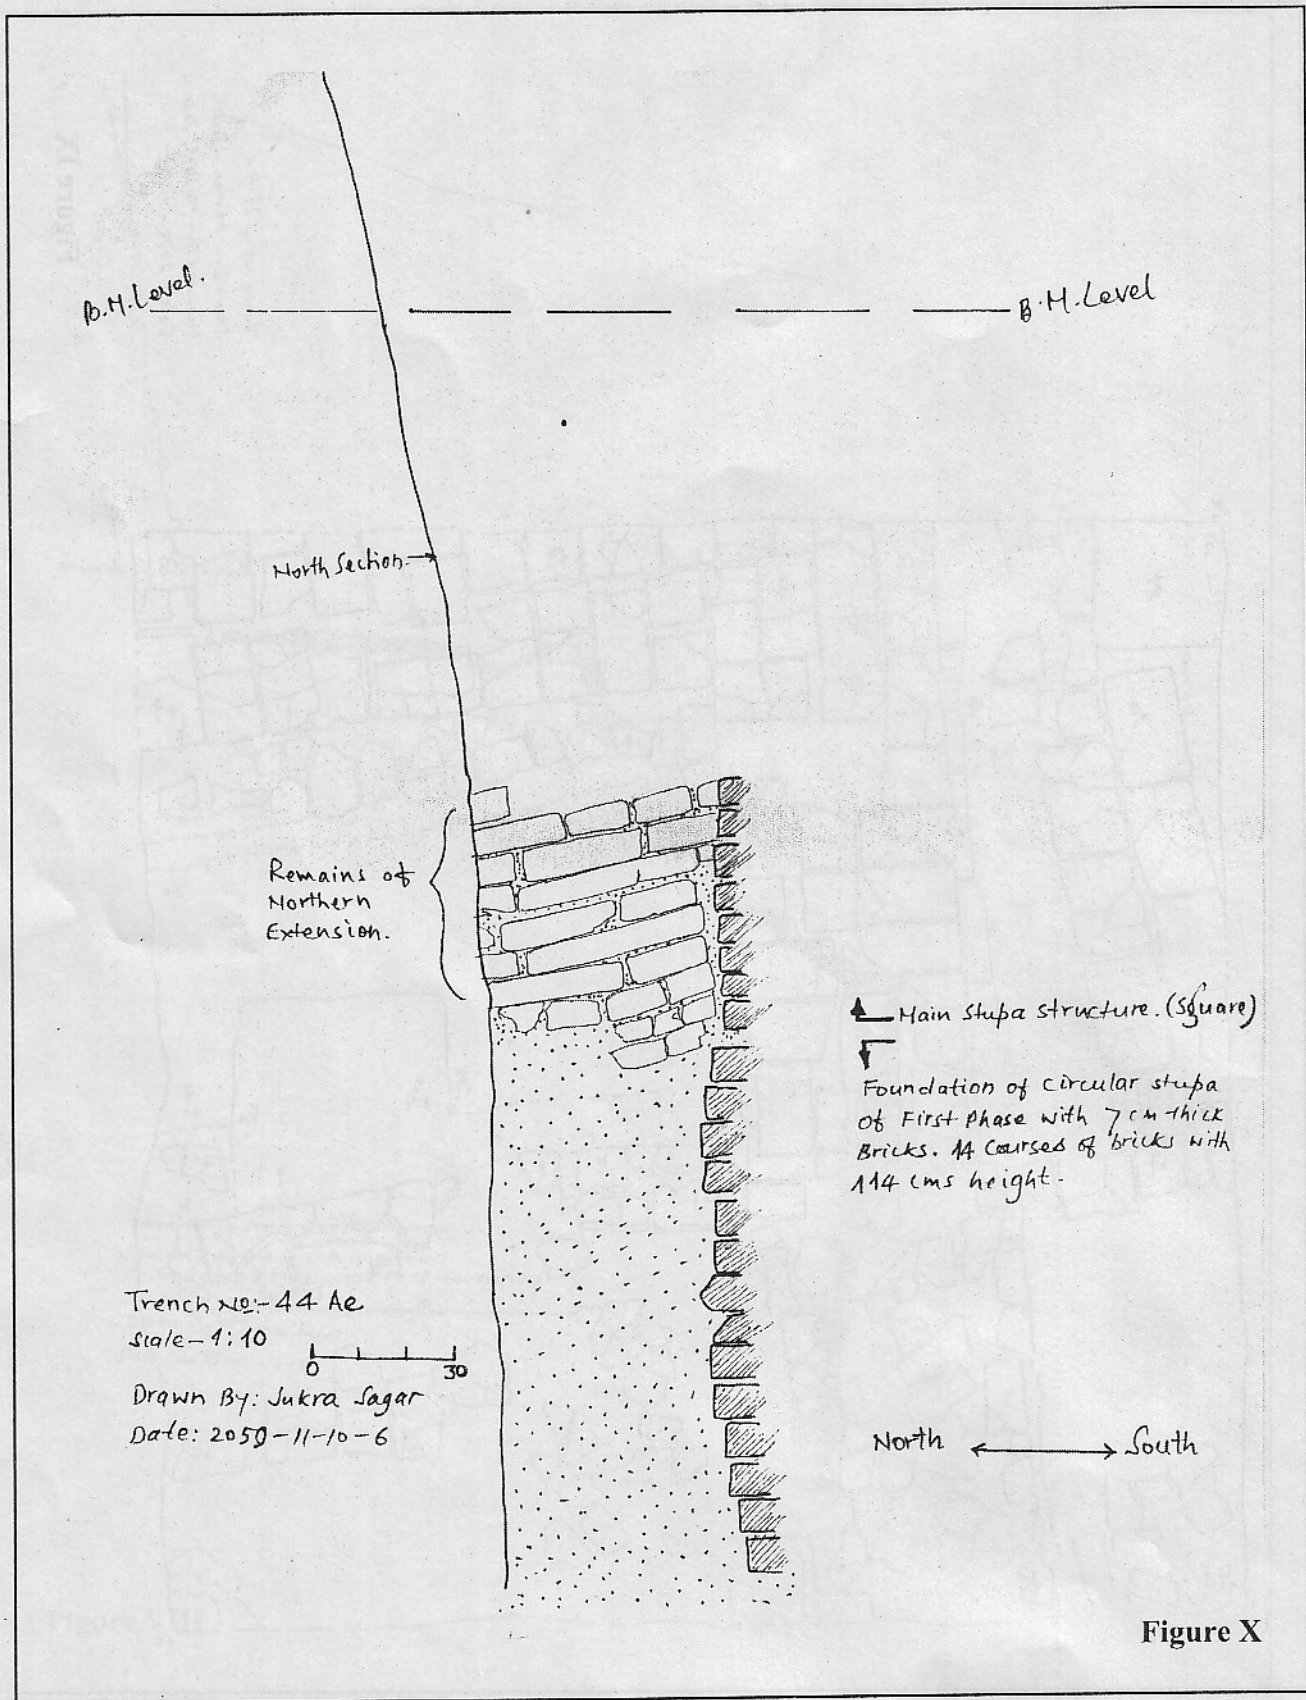 B.M. Level.
B.M. Level
North Section
Remains of
Northern
Extension.
Main Stupa structure. (Square)
Foundation of Circular stupa
of First Phase with 7 cm thick
Bricks. 14 Courses of bricks with
114 cms height.
Trench No:- 44 Ae
Scale - 1:10
0 30
Drawn By: Sukra Sagar
Date: 2059-11-10-6
North South
Figure X